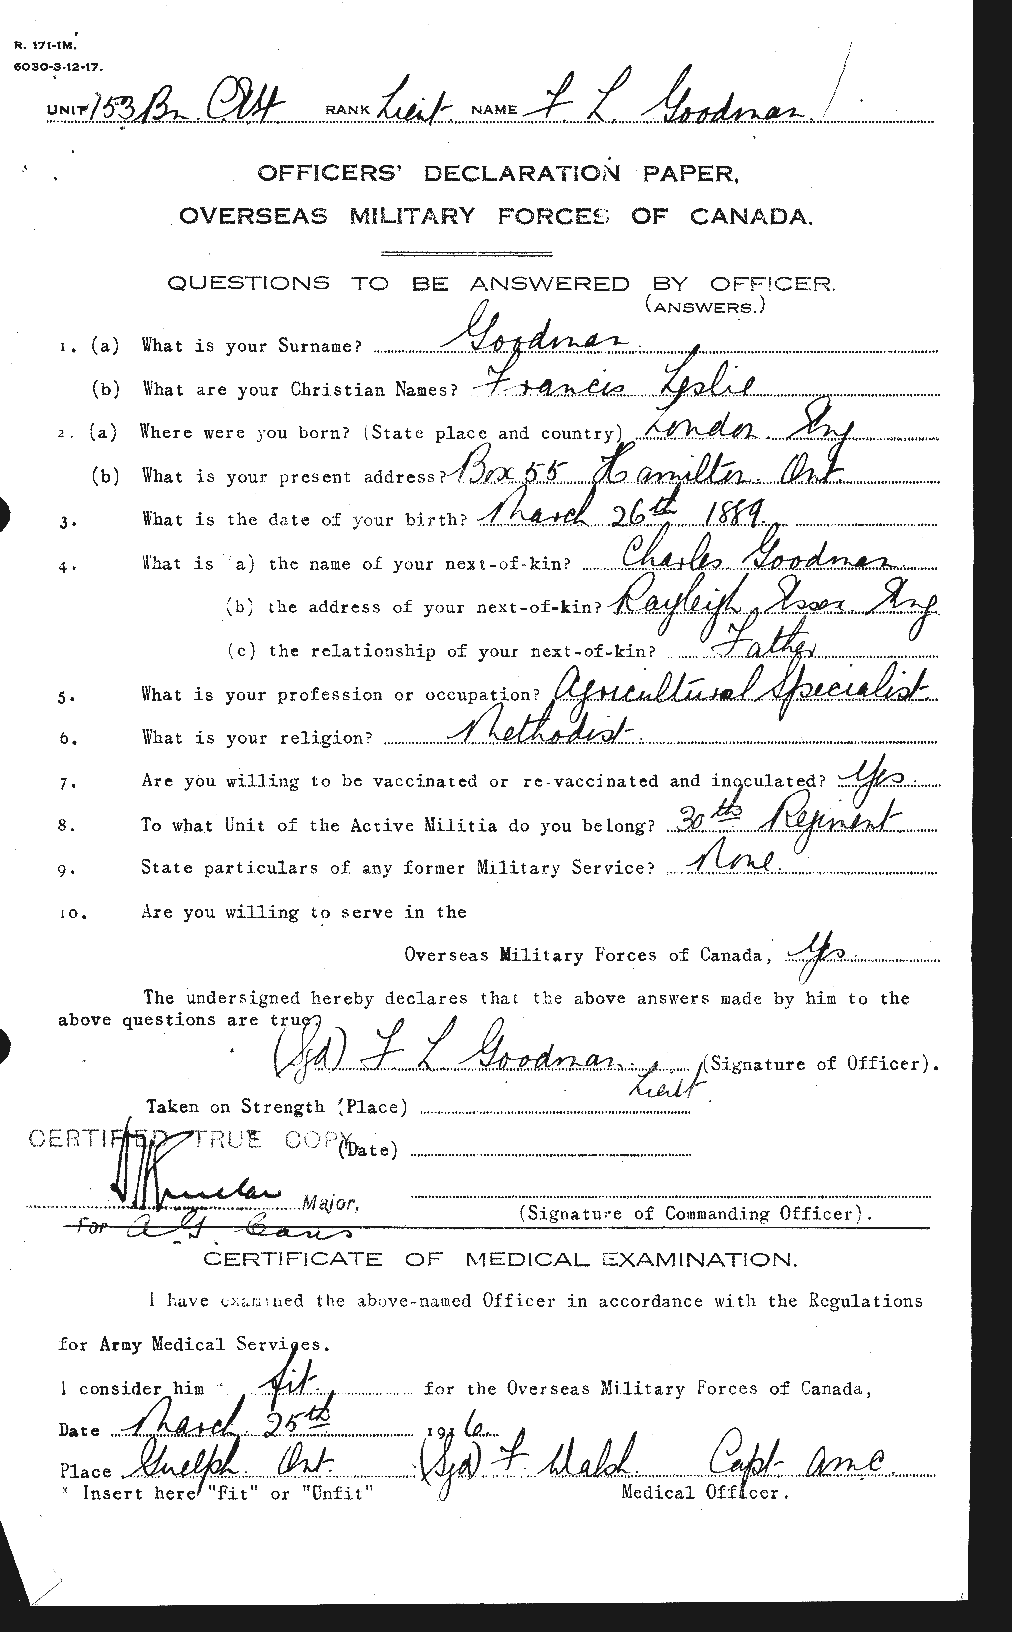 R. 171-1M.
6030-3-12-17.
UNIT 153 Bn. CEF RANK Lieut. NAME F. L. Goodman
OFFICERS' DECLARATION PAPER,
OVERSEAS MILITARY FORCES OF CANADA.
QUESTIONS TO BE ANSWERED BY OFFICER.
(ANSWERS.)
1. (a) What is your Surname? Goodman
(b) What are your Christian Names? Francis Leslie
2. (a) Where were you born? (State place and country) London. Eng
(b) What is your present address? Box 55 Hamilton. Ont.
3. What is the date of your birth? March 26th 1889.
4. What is (a) the name of your next-of-kin? Charles Goodman
(b) the address of your next-of-kin? Rayleigh, Essex Eng
(c) the relationship of your next-of-kin? Father
5. What is your profession or occupation? Agricultural Specialist
6. What is your religion? Methodist.
7. Are you willing to be vaccinated or re-vaccinated and inoculated? Yes.
8. To what Unit of the Active Militia do you belong? 30th Regiment
9. State particulars of any former Military Service? None.
10. Are you willing to serve in the
Overseas Military Forces of Canada, Yes.
The undersigned hereby declares that the above answers made by him to the
above questions are true?
(Sgd) F L Goodman. (Signature of Officer).
Lieut.
Taken on Strength (Place)
CERTIFIED TRUE COPY
(Date)
Major,
(Signature of Commanding Officer).
For A. G. Cans
CERTIFICATE OF MEDICAL EXAMINATION.
I have examined the above-named Officer in accordance with the Regulations
for Army Medical Services.
I consider him * fit. for the Overseas Military Forces of Canada,
Date March 25th 1916.
Place Guelph. Ont. (Sgd) F. Walsh. Capt. AMC.
* Insert here "Fit" or "Unfit" Medical Officer.